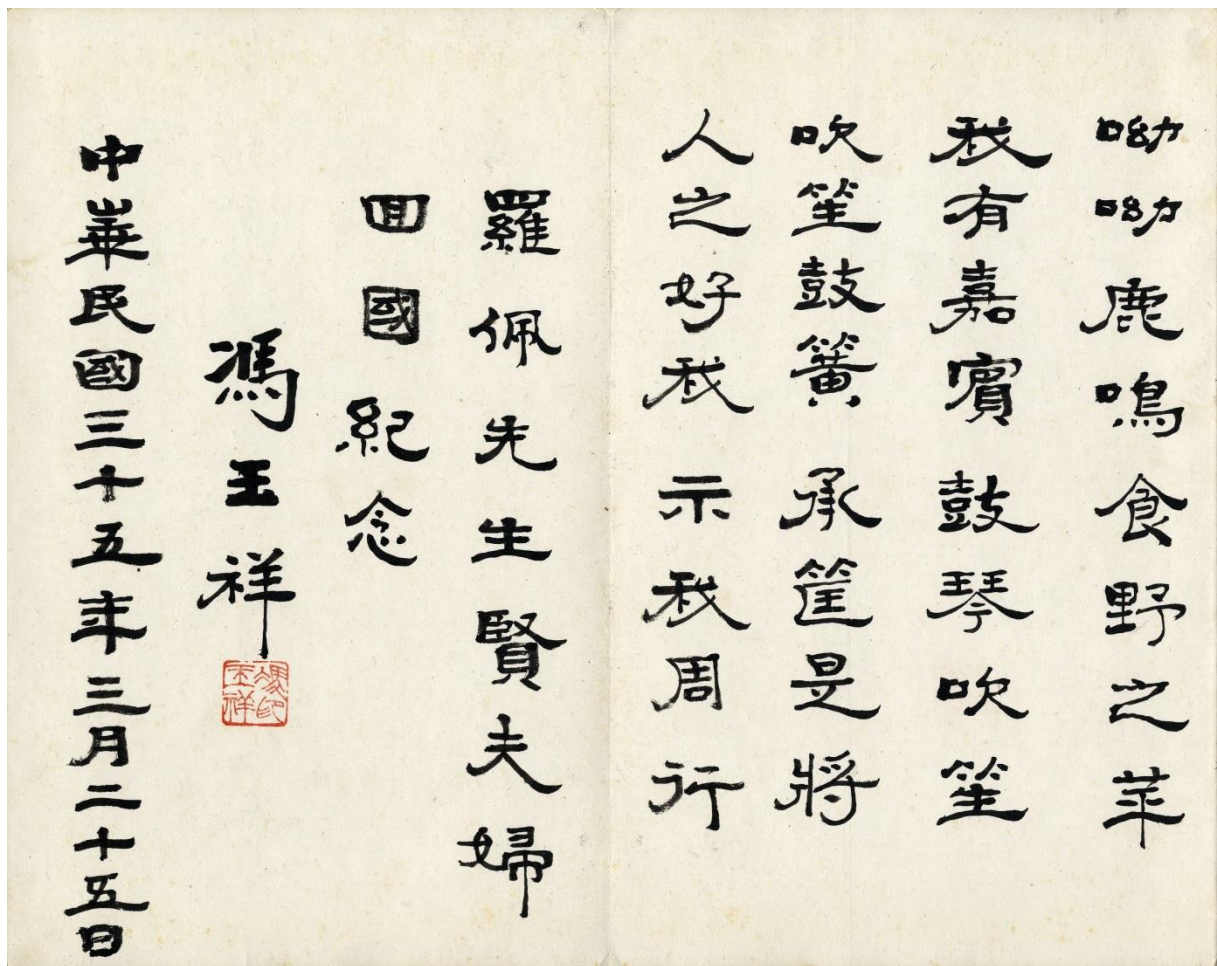 呦呦鹿鳴食野之苹
我有嘉賓鼓琴吹笙
吹笙鼓簧承筐是將
人之好我示我周行
羅佩先生賢夫婦
回國紀念
馮玉祥
馮印玉祥
中華民國三十五年三月二十五日